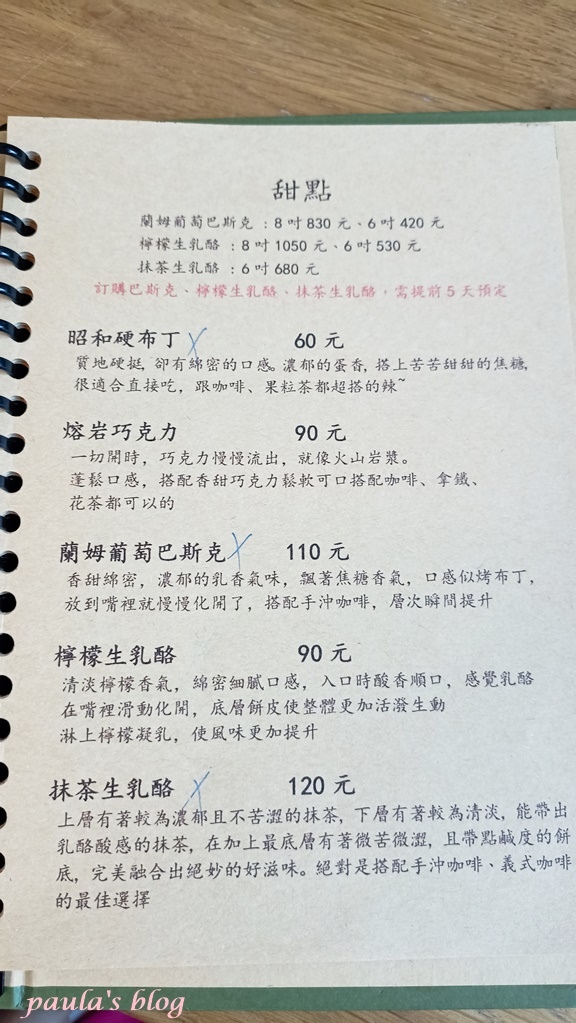 甜點
蘭姆葡萄巴斯克：8吋830元、6吋420元
檸檬生乳酪：8吋1050元、6吋530元
抹茶生乳酪：6吋680元
訂購巴斯克、檸檬生乳酪、抹茶生乳酪，需提前5天預定
昭和硬布丁 X 60元
質地硬挺, 卻有綿密的口感。濃郁的蛋香, 搭上苦苦甜甜的焦糖,
很適合直接吃，跟咖啡、果粒茶都超搭的辣~
熔岩巧克力 90元
一切開時，巧克力慢慢流出，就像火山岩漿。
蓬鬆口感，搭配香甜巧克力鬆軟可口搭配咖啡、拿鐵、
花茶都可以的
蘭姆葡萄巴斯克 X 110元
香甜綿密，濃郁的乳香氣味，飄著焦糖香氣，口感似烤布丁，
放到嘴裡就慢慢化開了，搭配手沖咖啡，層次瞬間提升
檸檬生乳酪 90元
清淡檸檬香氣，綿密細膩口感，入口時酸香順口，感覺乳酪
在嘴裡滑動化開，底層餅皮使整體更加活潑生動
淋上檸檬凝乳，使風味更加提升
抹茶生乳酪 X 120元
上層有著較為濃郁且不苦澀的抹茶，下層有著較為清淡，能帶出
乳酪酸感的抹茶，在加上最底層有著微苦微澀，且帶點鹹度的餅
底，完美融合出絕妙的好滋味。絕對是搭配手沖咖啡、義式咖啡
的最佳選擇
paula's blog